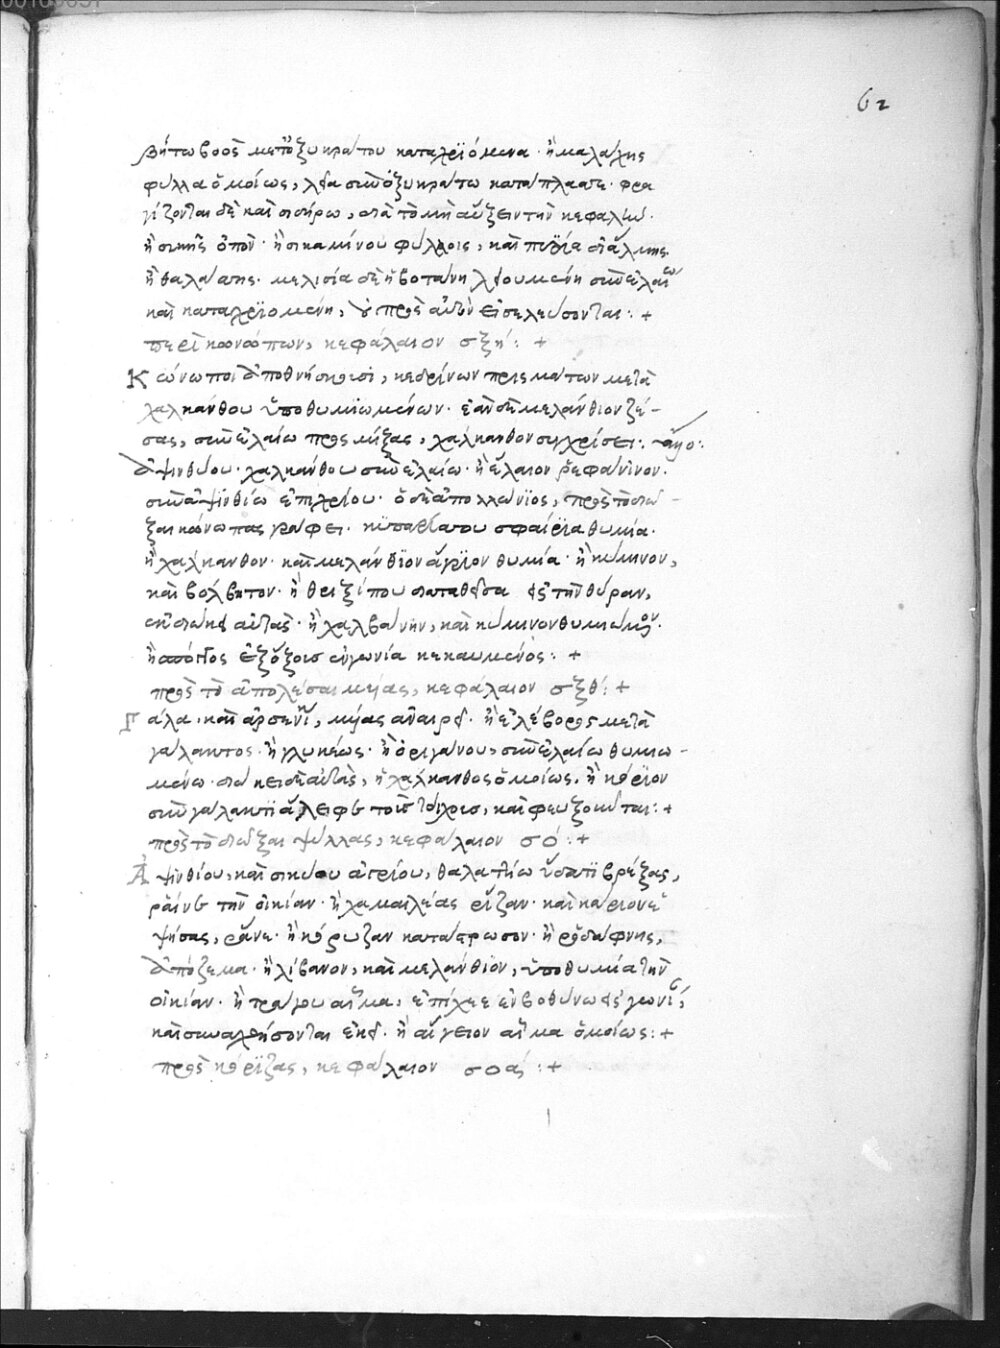 62
βήτω βοὸς μετ' ὀξυκράτου καταχρϊόμενα · ἢ μαλάχης
φύλλα ὁμοίως, λεῖα σὺν ὀξυκράτω κατάπλασσε ·
γίζονται δὲ καὶ σιδήρω, διὰ τὸ μὴ αὔξειν τὴν κεφαλὴν ·
ἢ συκῆς ὀπὸν · ἢ συκαμίνου φύλλοις, καὶ διάλμης
ἢ θαλάσσης · μελισία δὲ ἡ βοτάνη λειουμένη σὺν ἐλαίω
καὶ καταχρϊομένη, οὐ πρὸς αὐτὸν εἰσελεύσονται : +
περὶ κωνώπων, κεφάλαιον σξη΄ : +
Κώνωποι ἀποθνήσκουσι, κεδρίνων πρισμάτων μετὰ
χαλκάνθου ὑποθυμϊωμένων · ἐὰν δὲ μελάνθιον ζέ-
σας, σὺν ἐλαίω προσμίξας, χάλκανθον συγχρίσει :
ἀψινθίου · χαλκάνθου σὺν ἐλαίω · ἢ ἔλαιον ῥεφάνινον ·
σὺν ἀψινθίω ἐπιχρίου · ὁ δὲ ἀπολλώνϊος, πρὸς τὸ διῶ-
ξαι κώνωπας γράφει · κυπαρίσσου σφαίρϊα θυμία ·
ἢ χάλκανθον · καὶ μελάνθϊον ἄγρϊον θυμία · ἢ κύμινον,
καὶ βόλβιτον · ἢ θρὶξ ἵππου διαταθεῖσα εἰς τὴν θύραν,
ἐκδιώκει αὐτὰς · ἢ χαλβάνην, καὶ κύμινον θυμιώμενον ·
ἢ σπόγγος ἐξ ὄξους εὐγωνία κεκαυμένος : +
πρὸς τὸ ἀπολέσαι μύας, κεφάλαιον σξθ΄ : +
Γάλα · καὶ ἀρσενίκι, μύας ἀναιρεῖ · ἢ ἐλέβορος μετὰ
γάλακτος · ἢ γλυκέως · ἢ ὀριγάνου, σὺν ἐλαίω θυμιω-
μένω · διώκει δὲ αὐτὰς, ἡ χάλκανθος ὁμοίως · ἢ κόριον
σὺν γάλακτϊ ἄλειφε τοὺς τοίχους, καὶ φεύξονται : +
πρὸς τὸ διῶξαι ψύλλας, κεφάλαιον σο΄ : +
Ἀψινθίου, καὶ σικύου ἀγρίου, θαλαττίω ὕδατϊ βρέξας,
ῥαῖνε τὴν οἰκίαν · ἢ χαμαιλέας ῥίζαν · καὶ ἑ-
ψήσας, ῥᾶνε · ἢ κόρυζαν κατάστρωσον · ἢ ῥοδοδάφνης,
ἀπόζεμα · ἢ λίβανον, καὶ μελάνθϊον, ὑποθυμία τὴν
οἰκίαν · ἢ τράγου αἷμα, ἐπίχεε ἐν βοθύνω εἰς γωνίαν,
καὶ συναχθήσονται ἐκεῖ · ἢ αἴγειον αἷμα ὁμοίως : +
πρὸς κόριζας, κεφάλαιον σοα΄ : +